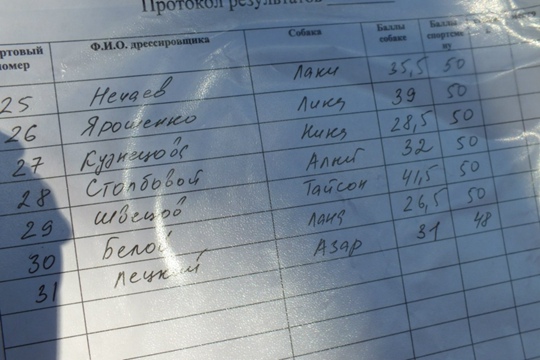 Протокол результатов
ртовый номер Ф.И.О. дрессировщика Собака Баллы собаке Баллы спортсмену
25 Нечаев Лаки 35,5 50
26 Ярошенко Линд 39 50
27 Кузнецова Ника 28,5 50
28 Столбовой 32 50
29 Швецов Тайсон 41,5 50
30 Белой Лана 26,5 50
31 Лецкий Азар 31 48